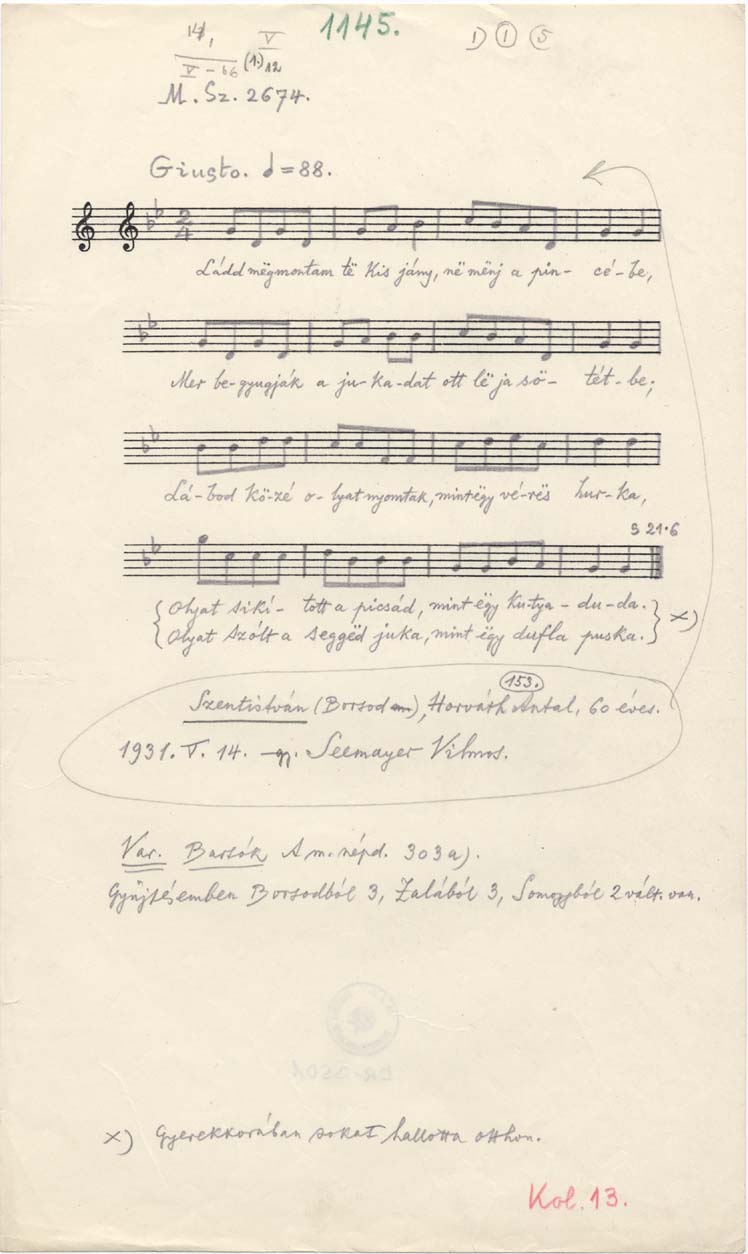 1145.
V
D 1 5
V-66 (1.) 12
M. Sz. 2674.
Giusto. ♩=88.
2/4
Ládd mëgmontam të kis jány, në mënj a pin- cé-be,
Mer be-gyugják a ju-ka-dat ott lë ja sö- tét-be;
Lá-bod kö-zé o-lyat nyomtak, mint ëgy vé-rës hur-ka,
5 21·6
{Olyat siki- tott a picsád, mint ëgy ku-tya-du-da.}
{Olyat szólt a seggëd juka, mint ëgy dufla puska.} x)
153.
Szentistván (Borsod), Horváth Antal, 60 éves.
1931. V. 14. gy. Seemayer Vilmos.
Var. Bartók A m. népd. 303a).
Gyűjtésemben Borsodból 3, Zalából 3, Somogyból 2 vált. van.
x) Gyerekkorában sokat hallotta otthon.
Kol. 13.